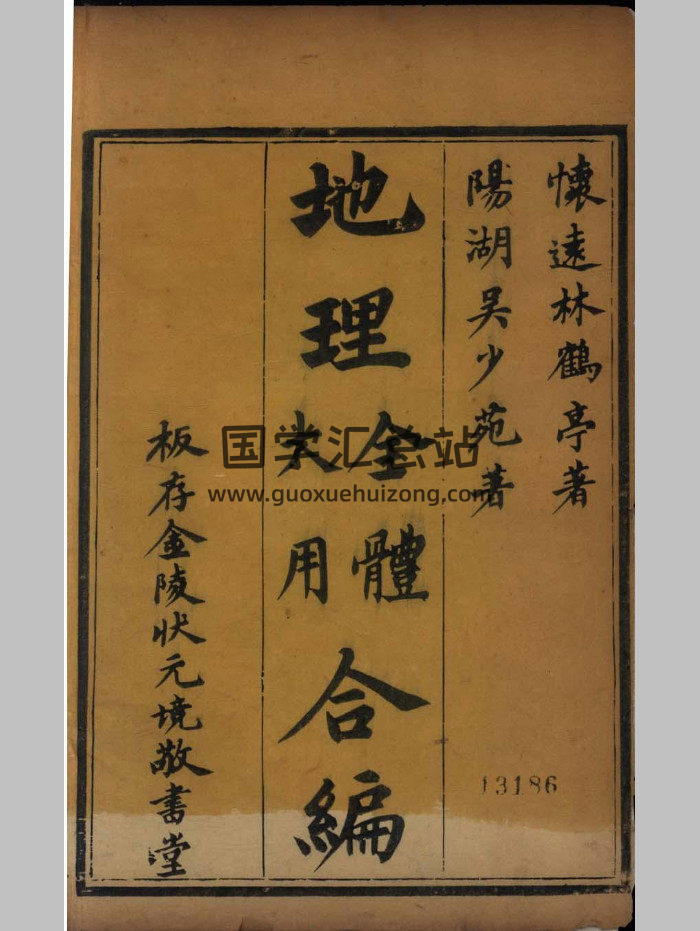 懷遠林鶴亭著
陽湖吴少苑著
地理全體大用合編
板存金陵状元境敬書堂
13186
国学汇总站
www.guoxuehuizong.com